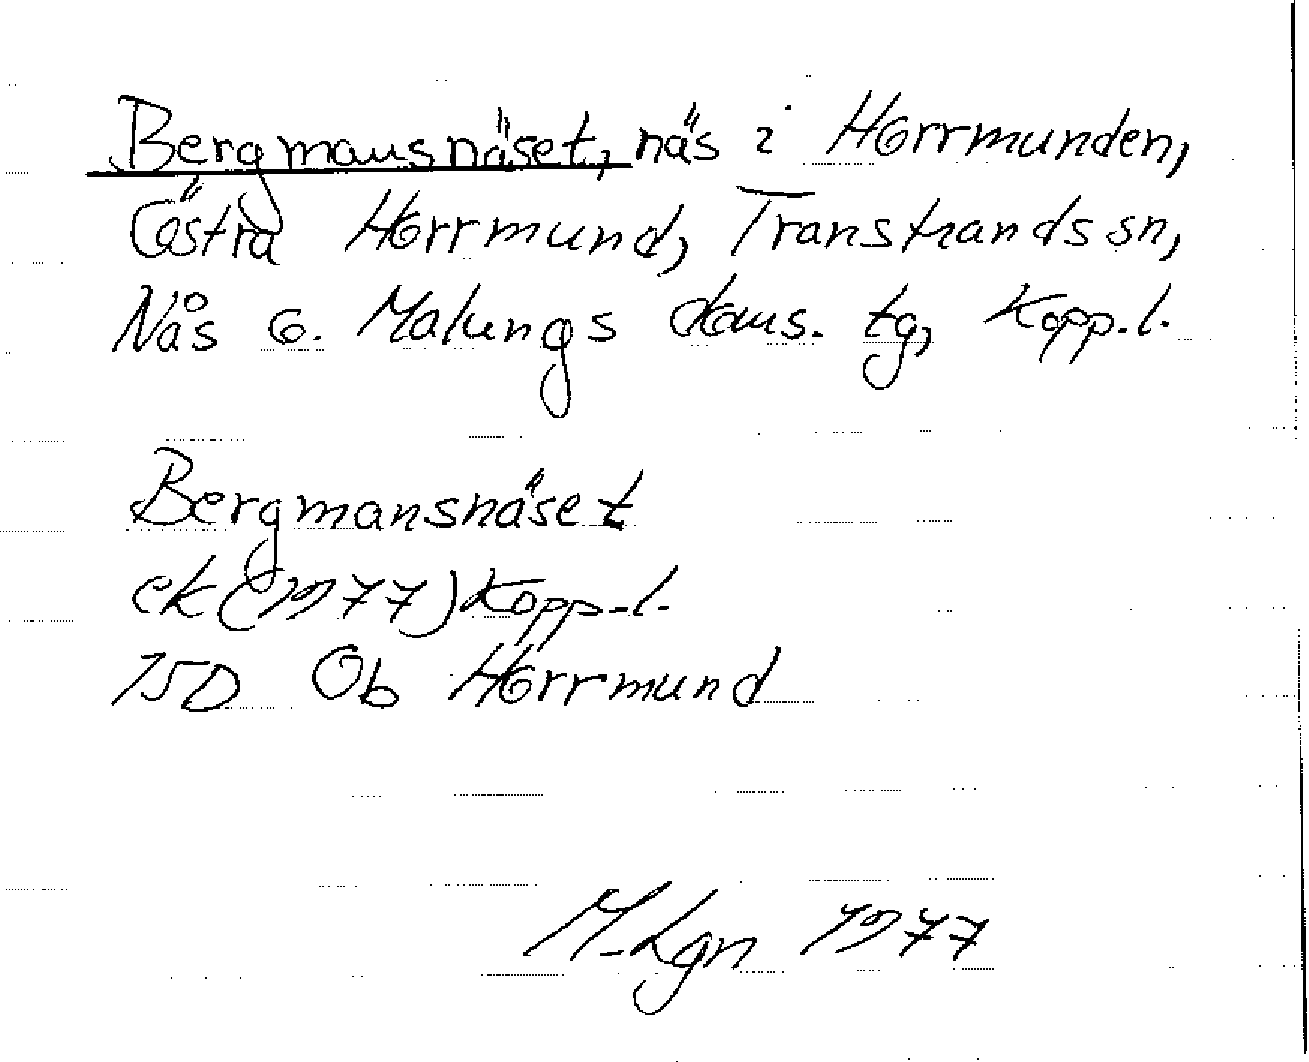 Bergmansnäset, näs i Horrmunden,
Östra Horrmund, Transtrands sn,
Nås o. Malungs doms. tg, Kopp.l.
Bergmansnäset
ek (1977) Kopp.l.
15D Ob Horrmund
M.Lgn 1977